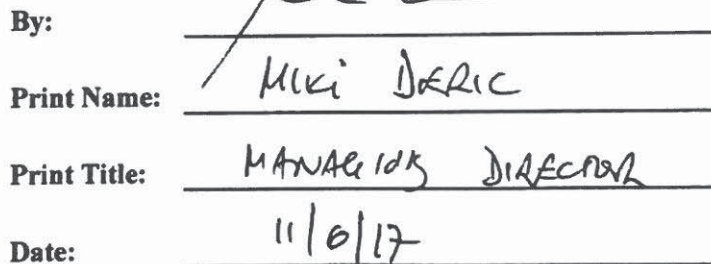 By:
Print Name: Miki DERIC
Print Title: MANAGING DIRECTOR
Date: 11/6/17